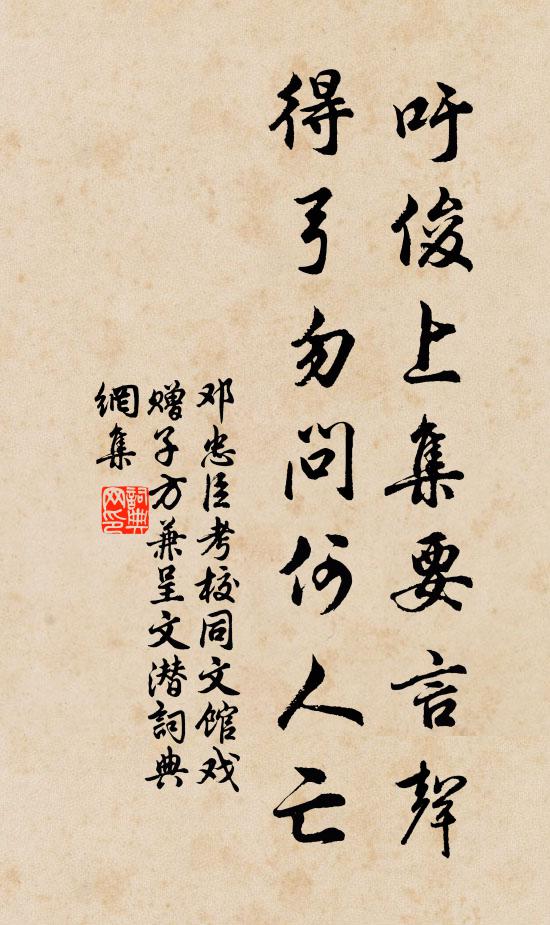 吁俊上集要言聲
得弓勿問何人亡
邓忠臣考校同文馆戏
赠子方兼呈文潜詞典
網集
詞典網印